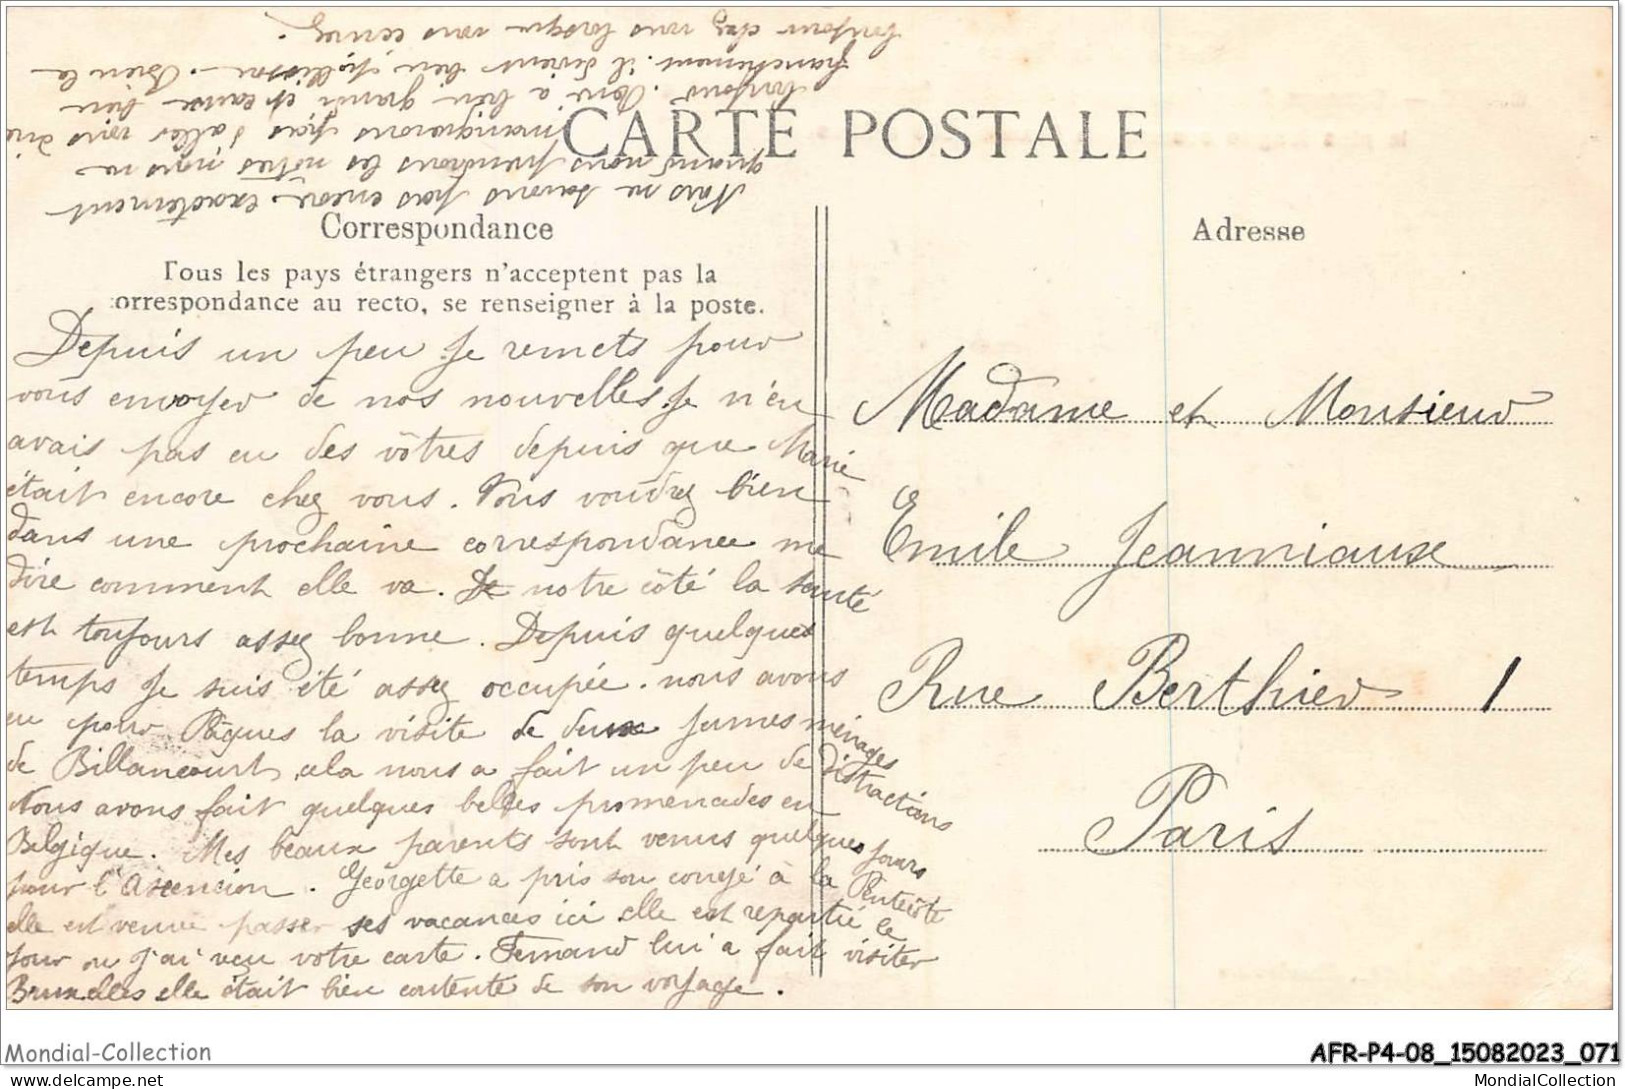 CARTE POSTALE
Correspondance
Tous les pays étrangers n'acceptent pas la
correspondance au recto, se renseigner à la poste.
Adresse
Depuis un peu je remets pour
vous envoyer de nos nouvelles. Je n'en
avais pas eu des vôtres depuis que Marie
était encore chez vous. Vous voudrez bien
dans une prochaine correspondance me
dire comment elle va. De notre côté la santé
est toujours assez bonne. Depuis quelques
temps je suis été assez occupée. nous avons
eu pour Pâques la visite de deux jeunes ménages
de Billancourt, cela nous a fait un peu de distractions
Nous avons fait quelques belles promenades en
Belgique. Mes beaux parents sont venus quelques jours
pour l'Ascencion. Georgette a pris son congé à la Pentecôte
elle est venue passer ses vacances ici elle est repartie le
jour où j'ai reçu votre carte. Fernand lui a fait visiter
Bruxelles elle était bien contente de son voyage.
Nous ne savons pas encore exactement
quand nous prendrons les nôtres mais ne
manquerons pas d'aller vous dire
bonjour. a bien grandi et cause bien
franchement. il devient bien polisson. Bien le
bonjour chez vous lorsque vous écrirez.
Madame et Monsieur
Emile Jeanniaux
Rue Berthier 1
Paris
Mondial-Collection
AFR-P4-08_15082023_071
delcampe.net
MondialCollection